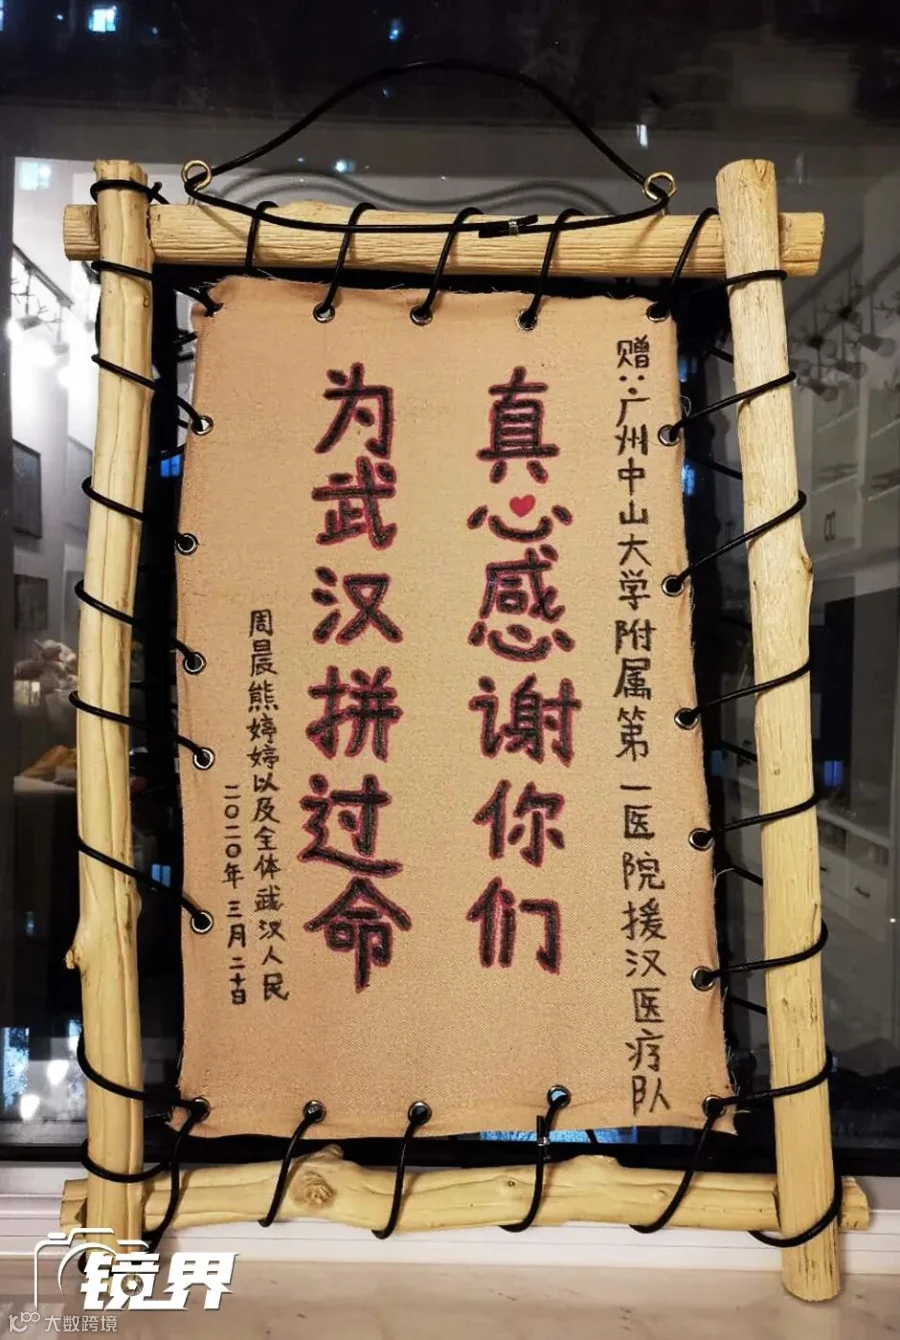 赠:广州中山大学附属第一医院援汉医疗队
真心感谢你们
为武汉拼过命
周晨熊婷婷以及全体武汉人民
二〇二〇年三月二十日
镜界
大数跨境